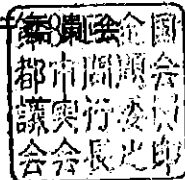 全国
都市問題会
議実行委員
会会長之印